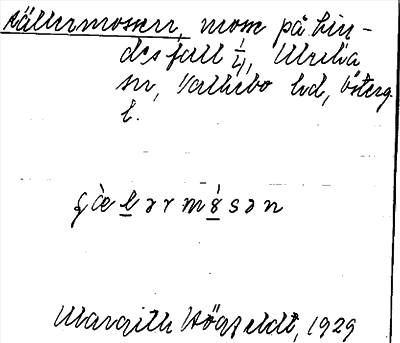 Källermossen, mosse på Lin-
desfall 1/4, Ulrika
sn, Valkebo hd, Österg.
l.
Margith Högfeldt, 1929